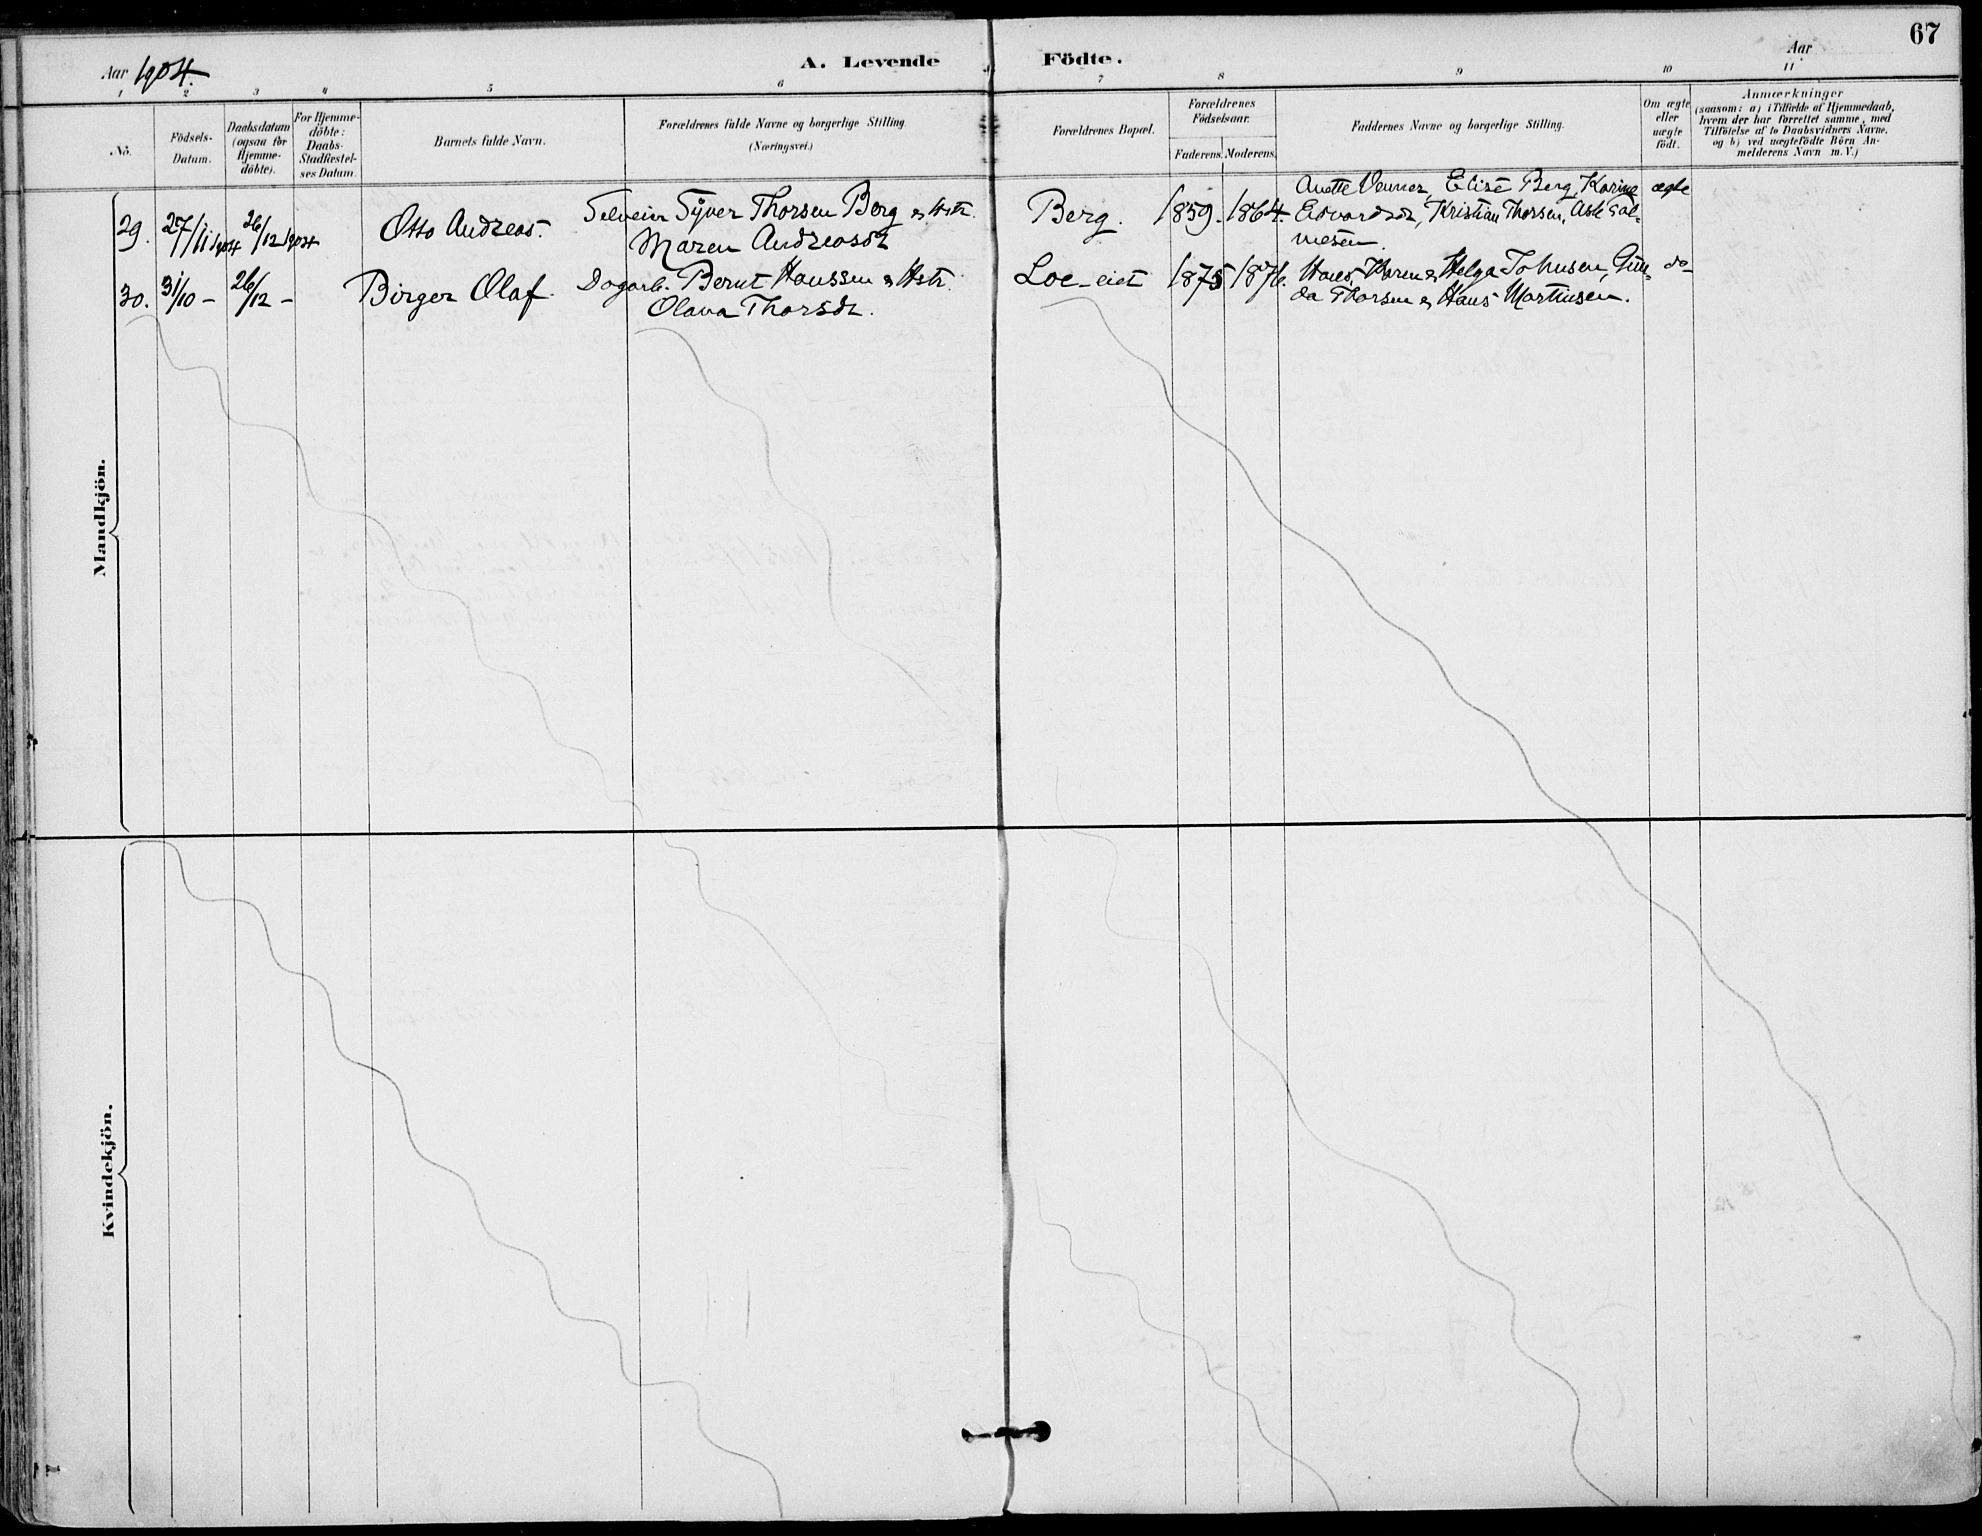 67
Aar 1904.
A. Levende Födte.
Aar
1 2 3 4 5 6 7 8 9 10 11
No.
Födsels-
Datum.
Daabsdatum
(ogsaa for
Hjemme-
döbte).
For Hjemme-
döbte:
Daabs-
Stadfæstel-
ses Datum.
Barnets fulde Navn.
Forældrenes fulde Navne og borgerlige Stilling
(Næringsvei.)
Forældrenes Bopæl.
Forældrenes
Födselsaar.
Faderens. Moderens.
Faddernes Navne og borgerlige Stilling.
Om ægte
eller
uægte
födt.
Anmærkninger
(saasom: a) i Tilfælde af Hjemmedaab,
hvem der har forrettet samme, med
Tilföielse af to Daabsvidners Navne,
og b) ved uægtefödte Börn An-
melderens Navn m. V.)
Mandkjön.
29. 27/11 1904 26/12 1904 Otto Andreas. Selveier Syver Thorsen Berg og Hstr. Berg. 1859. 1864. Anette Elise Berg, Karine ægte
Maren Andreasdr Edvardsdr, Kristian Thorsen,
30. 31/10 - 26/12 - Birger Olaf. Dagarb. Bernt Hanssen og Hstr. Loe-eiet 1875 1876. Hans, Karen og Helga Johnsen, Gun- do-
Olava Thorsdr. da Thorsen og Hans Martinsen.
Kvindekjön.